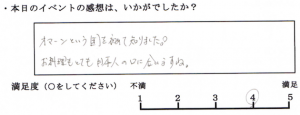 ・本日のイベントの感想は、いかがでしたか？
オマーンという国を初めて知りました。
お料理もとても日本人の口に合いますね。
満足度（○をしてください） 不満 満足
1 2 3 4 5